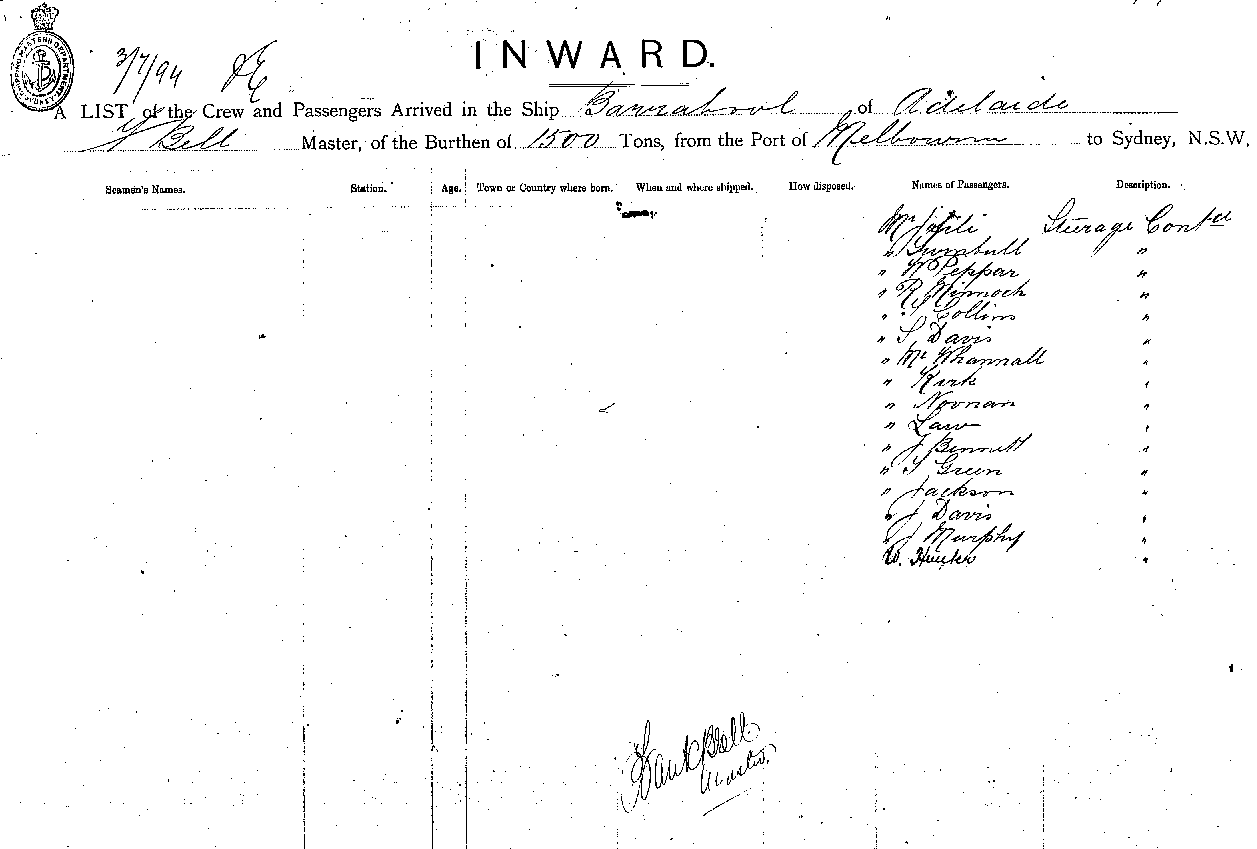 3/7/94
INWARD.
A LIST of the Crew and Passengers Arrived in the Ship Barrabool of Adelaide
Bell Master, of the Burthen of 1500 Tons, from the Port of Melbourne to Sydney, N.S.W,
Seamen's Names. Station. Age. Town or Country where born. When and where shipped. How disposed. Names of Passengers. Description.
Mr Sturage Contd
" Turnbull "
" W Peppar "
" R "
" Collins "
" S Davis "
" Mc Whannall "
" Kirk "
" Noonan "
" Law "
" J Bennett "
" T Green "
" Jackson "
" J Davis "
" J Murphy "
W. Hunter "
Frank Bell
Master.